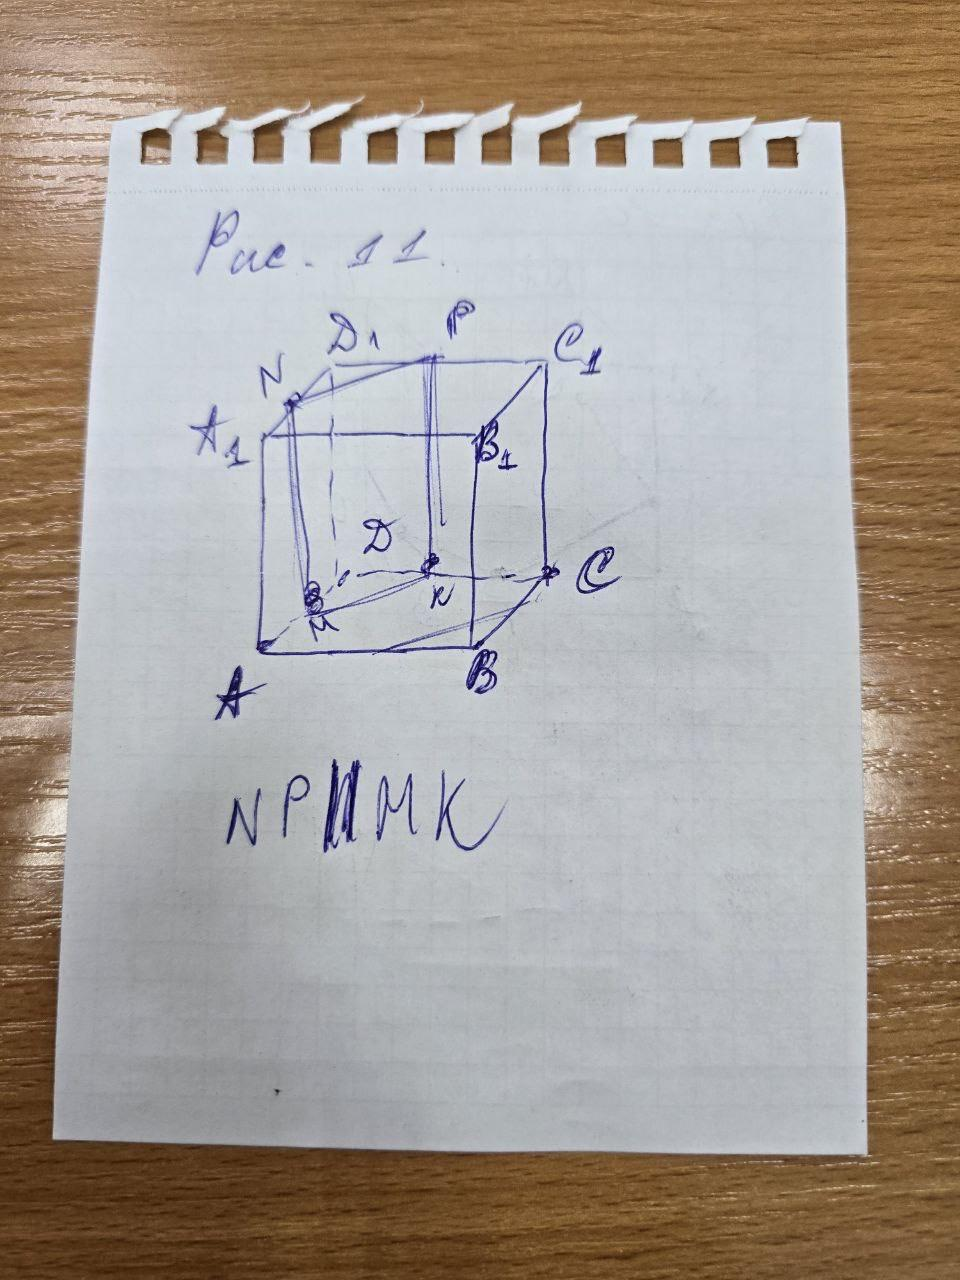 Рис. 11.
D1 P C1
N
A1 B1
D C
K
M
A B
NP || MK